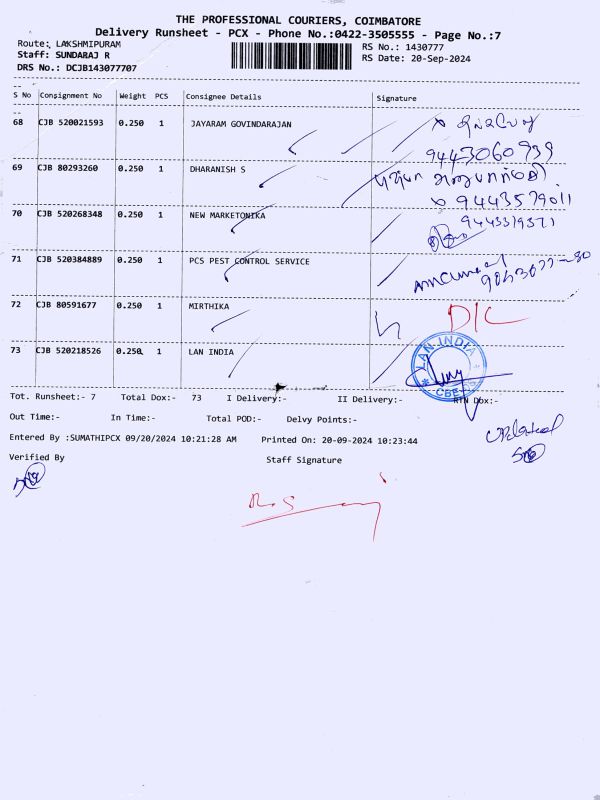 THE PROFESSIONAL COURIERS, COIMBATORE
Delivery Runsheet - PCX - Phone No.:0422-3505555 - Page No.:7
Route: LAKSHMIPURAM RS No.: 1430777
Staff: SUNDARAJ R RS Date: 20-Sep-2024
DRS No.: DCJB143077707
S No Consignment No Weight PCS Consignee Details Signature
68 CJB 520021593 0.250 1 JAYARAM GOVINDARAJAN
9443060939
69 CJB 80293260 0.250 1 DHARANISH S
9443579011
70 CJB 520268348 0.250 1 NEW MARKETONIKA 9443319371
71 CJB 520384889 0.250 1 PCS PEST CONTROL SERVICE
72 CJB 80591677 0.250 1 MIRTHIKA D/C
73 CJB 520218526 0.250 1 LAN INDIA LAN INDIA
CBE
Tot. Runsheet:- 7 Total Dox:- 73 I Delivery:- II Delivery:- RTN Dox:-
Out Time:- In Time:- Total POD:- Delvy Points:-
Entered By :SUMATHIPCX 09/20/2024 10:21:28 AM Printed On: 20-09-2024 10:23:44
Verified By Staff Signature